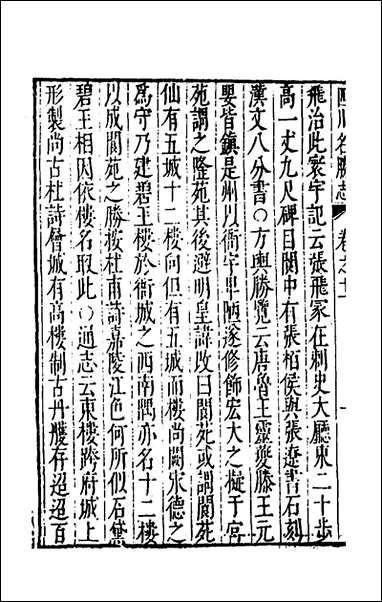 四川名勝志 卷之十一
飛治此寰宇記云張飛冢在刺史大廳東二十步
高一丈九尺碑目閬中有張桓侯與張遼書石刻
漢文八分書○方輿勝覽云唐魯王靈夔滕王元
嬰皆鎮是州以衙宇卑陋遂修飾宏大之擬于宫
苑謂之隆苑其後避明皇諱改曰閬苑或謂閬苑
仙有五城十二樓向但有五城而樓尚闕宋德之
為守乃建碧玉樓於衙城之西南隅亦名十二樓
以成閬苑之勝按杜甫詩嘉陵江色何所似石黛
碧玉相因依樓名取此○通志云東樓跨府城上
形製尚古杜詩曾城有高樓制古丹雘存迢迢百